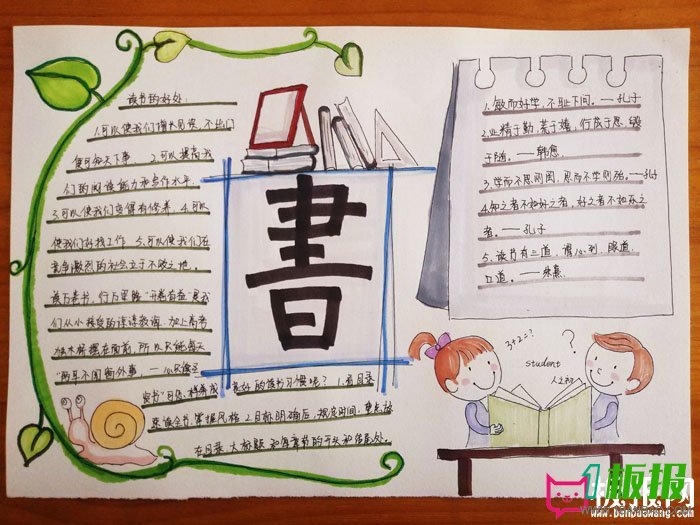 读书的好处:
1.可以使我们增长见识,不出门
便可知天下事 2.可以提高我
们的阅读能力和写作水平.
3.可以使我们变得有修养 4.可以
使我们好找工作 5.可以使我们在
竞争激烈的社会立于不败之地。
读万卷书,行万里路"开卷有益"是我
们从小接受的谆谆教诲,加上高考
独木桥摆在面前,所以只能每天
"两耳不闻窗外事,一心只读
圣贤书"可是,样养成
良好的读书习惯呢? 1.看目录
来读全书,掌握风格 2.目标明确后,
在目录、大标题 和每章节的开头和结尾处。
書
1.敏而好学,不耻下问。——孔子
2.业精于勤 荒于嬉,行成于思 毁
于随。——韩愈
3.学而不思则罔,思而不学则殆。——孔子
4.知之者不如好之者,好之者不如乐之
者。——孔子
5.读书有三道,谓心到,眼道,
口道。——朱熹
3+2=?
?
student
人之初
1板报
板报网
www.banbaowang.com